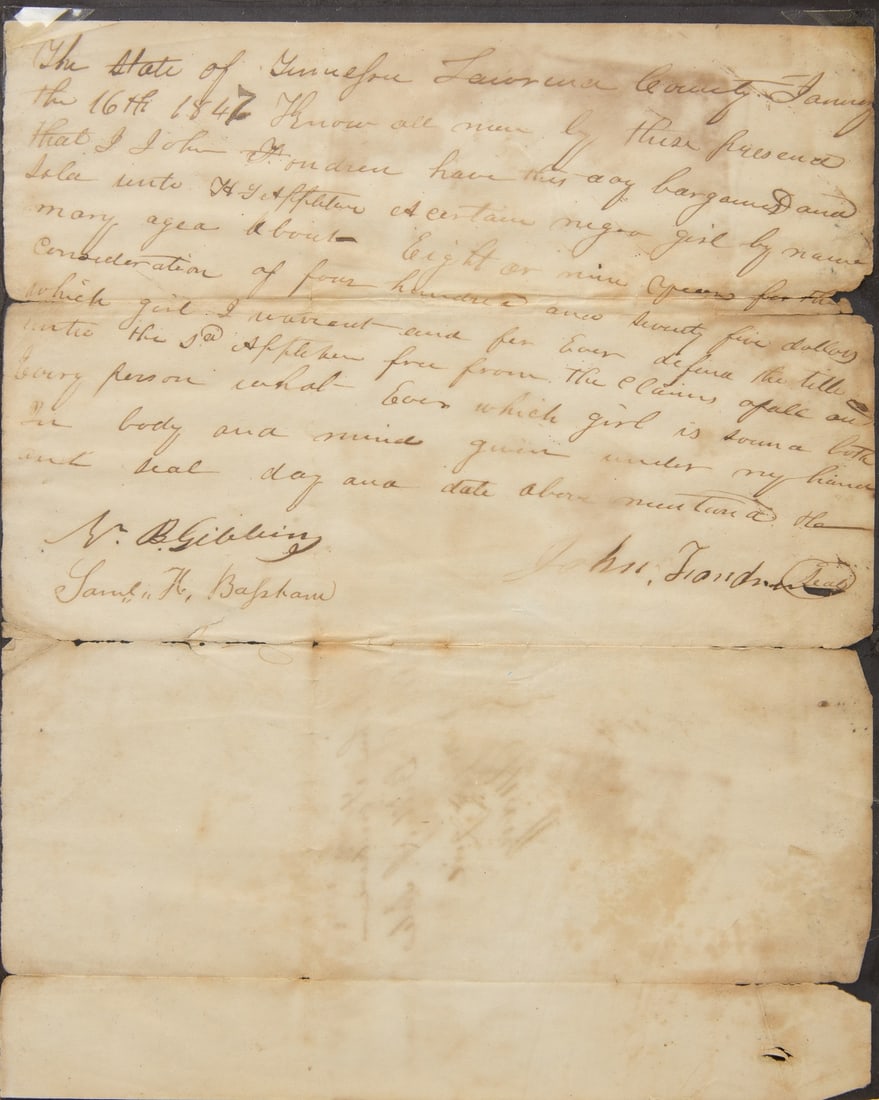 The State of Tennessee Lawrence County January
the 16th 1847 Know all men by these presence
that I John Fondren have this day bargained and
sold unto H G Appleton A certain negro girl by name
mary aged About Eight or nine years for the
consideration of four hundred and seventy five dollars
which girl I warrent and for Ever defend the title
unto the sd Appleton free from the claims of all and
Every person what Ever which girl is sound both
In body and mind given under my hand
and seal day and date above mentiond
Wm B. Gibbins
John Fondren Seal
Saml. H. Bassham